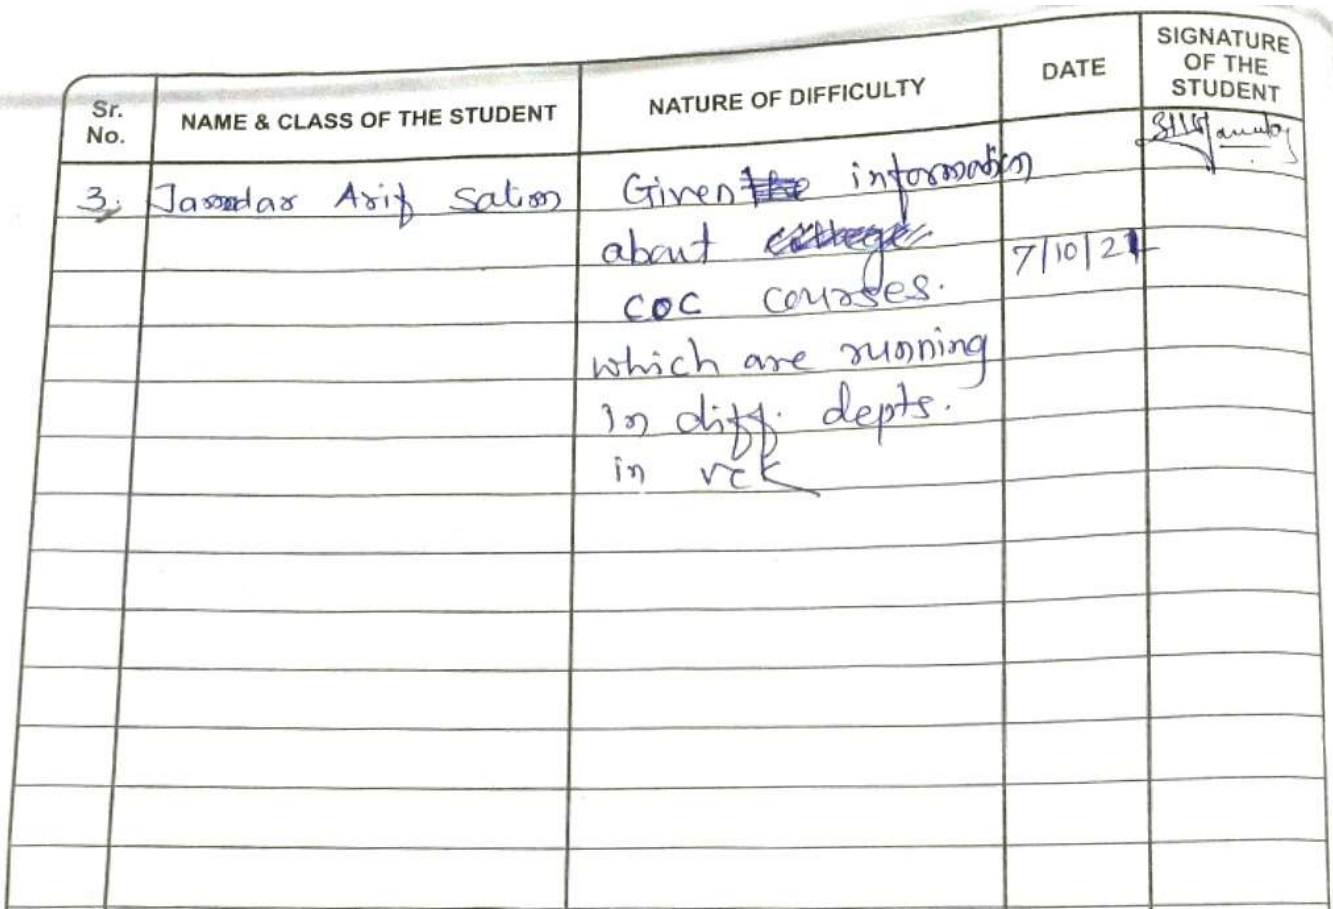 Sr. No.
NAME & CLASS OF THE STUDENT
NATURE OF DIFFICULTY
DATE
SIGNATURE OF THE STUDENT
3. Jamadar Arif Salim
Given the information
about college
COC courses.
which are running
in diff. depts.
in vck
7/10/21